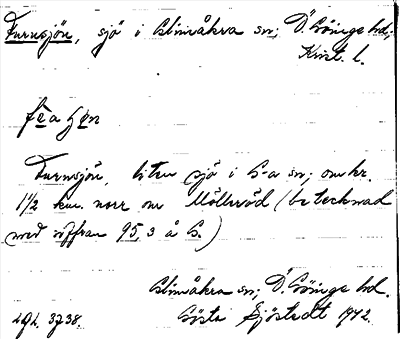 Furusjön, sjö i Glimåkra sn; Ö. Göinge hd;
Krist. l.
Furusjön, liten sjö i G-a sn; omkr.
1 1/2 km. norr om Mölleröd (betecknad
med siffran 95,3 å G.)
Glimåkra sn; Ö. Göinge hd.
Gösta Sjöstedt 1942.